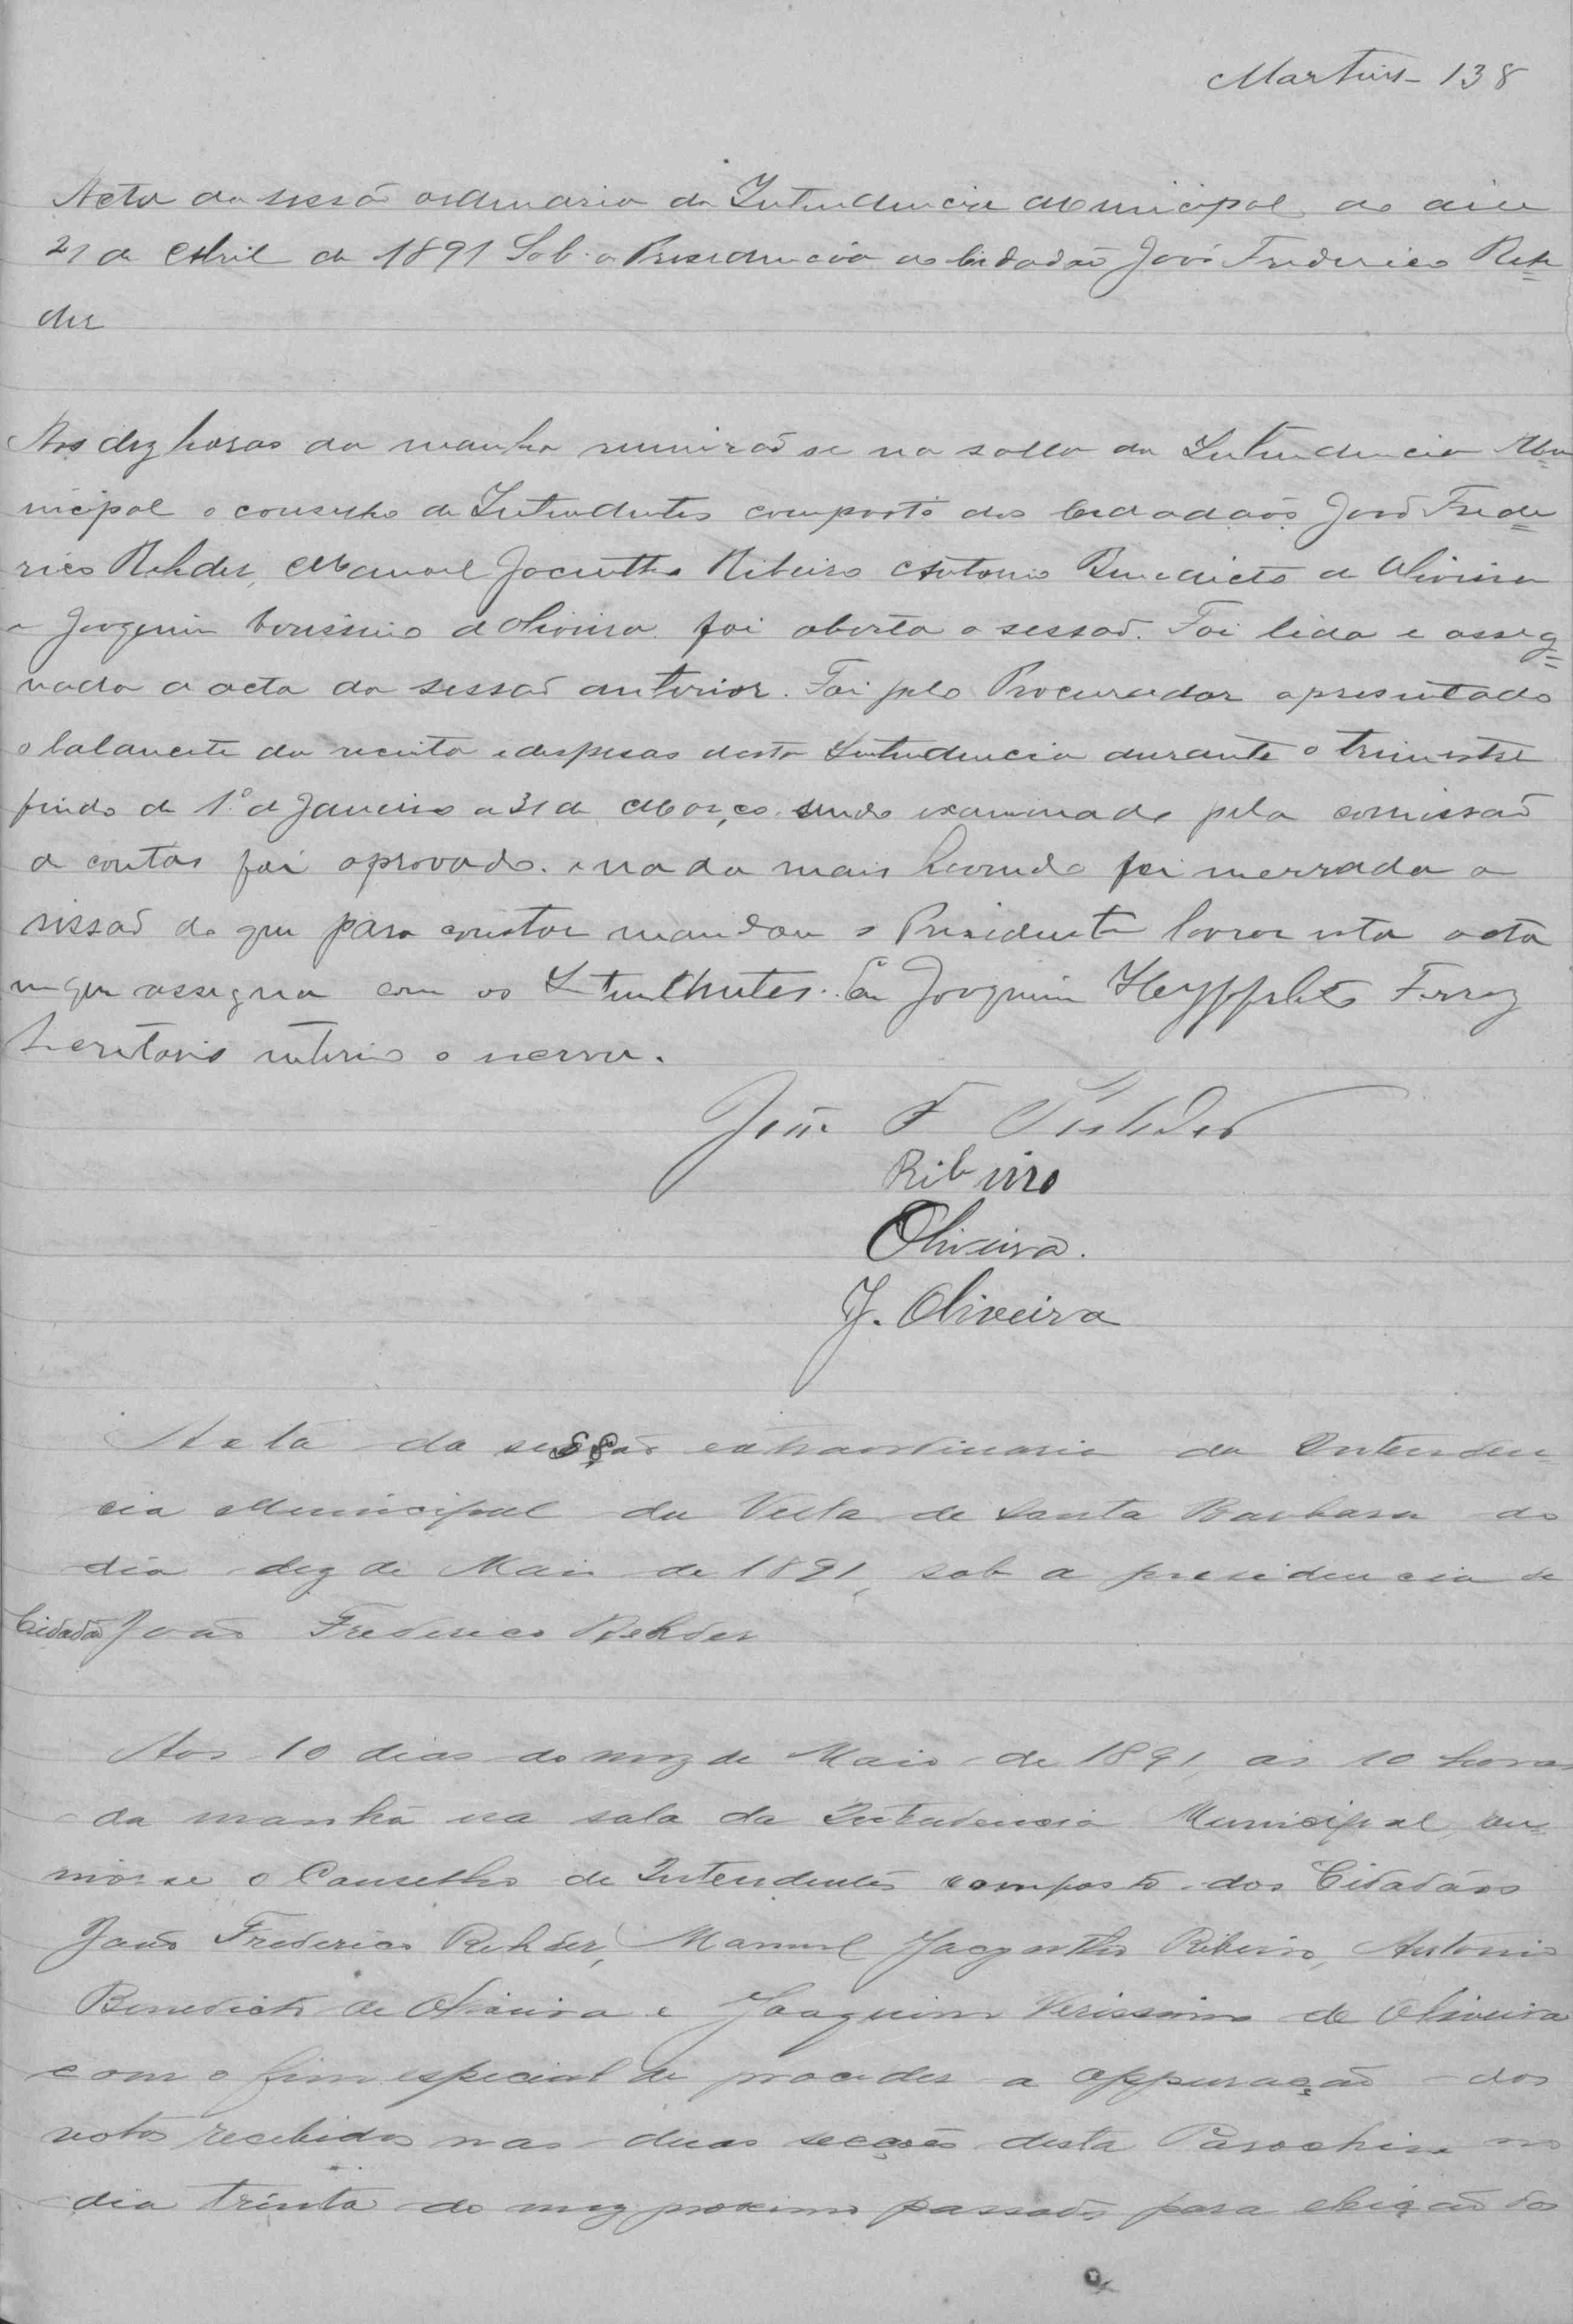 Martins 138
Acta da sessão ordinaria da Intendencia Municipal do dia
21 de Abril de 1891 Sob a Presidencia do Cidadão João Frederico Reh=
der
As dez horas da manha reunirão se na salla da Intendencia Mu=
nicipal o conselho de Intendentes composto dos Cidadãos João Frede=
rico Rehder, Manoel Jacintho Ribeiro Antonio Benedicto de Oliveira
e Joaquim Verissimo de Oliveira foi aberta a sessão. Foi lida e asseg=
nada a acta da sessão anterior. Foi pelo Procurador apresentado
o balancete da receita e despesas desta Intendencia durante o trimestre
findo de 1º de Janeiro a 31 de Março, sendo examinado pela comissão
de contas foi aprovado. e nada mais havendo foi incerrada a
sessão do que para constar mandou o Presidente lavrar esta acta
em que assegna com os Intendentes. Eu Joaquim Heyppolito Ferraz
Secretario interino o escrevi.
João F Rehder
Ribeiro
Oliveira.
J. Oliveira
Acta da sessão extraordinaria da Intenden
cia Municipal da Villa de Santa Barbara do
dia dez de Maio de 1891, sob a presidencia do
Cidadão João Frederico Rehder
Aos 10 dias do mez de Maio de 1891, as 10 horas
da manhã na sala da Intendencia Municipal, reu=
nio-se o Conselho de Intendentes composto dos Cidadãos
João Frederico Rehder, Manuel Jacyntho Ribeiro, Antonio
Benedicto de Oliveira e Joaquim Verissimo de Oliveira
com o fim especial de proceder a appuração dos
votos recebidos nas duas secções desta Parochia no
dia trinta do mez proximo passado, para eleição dos